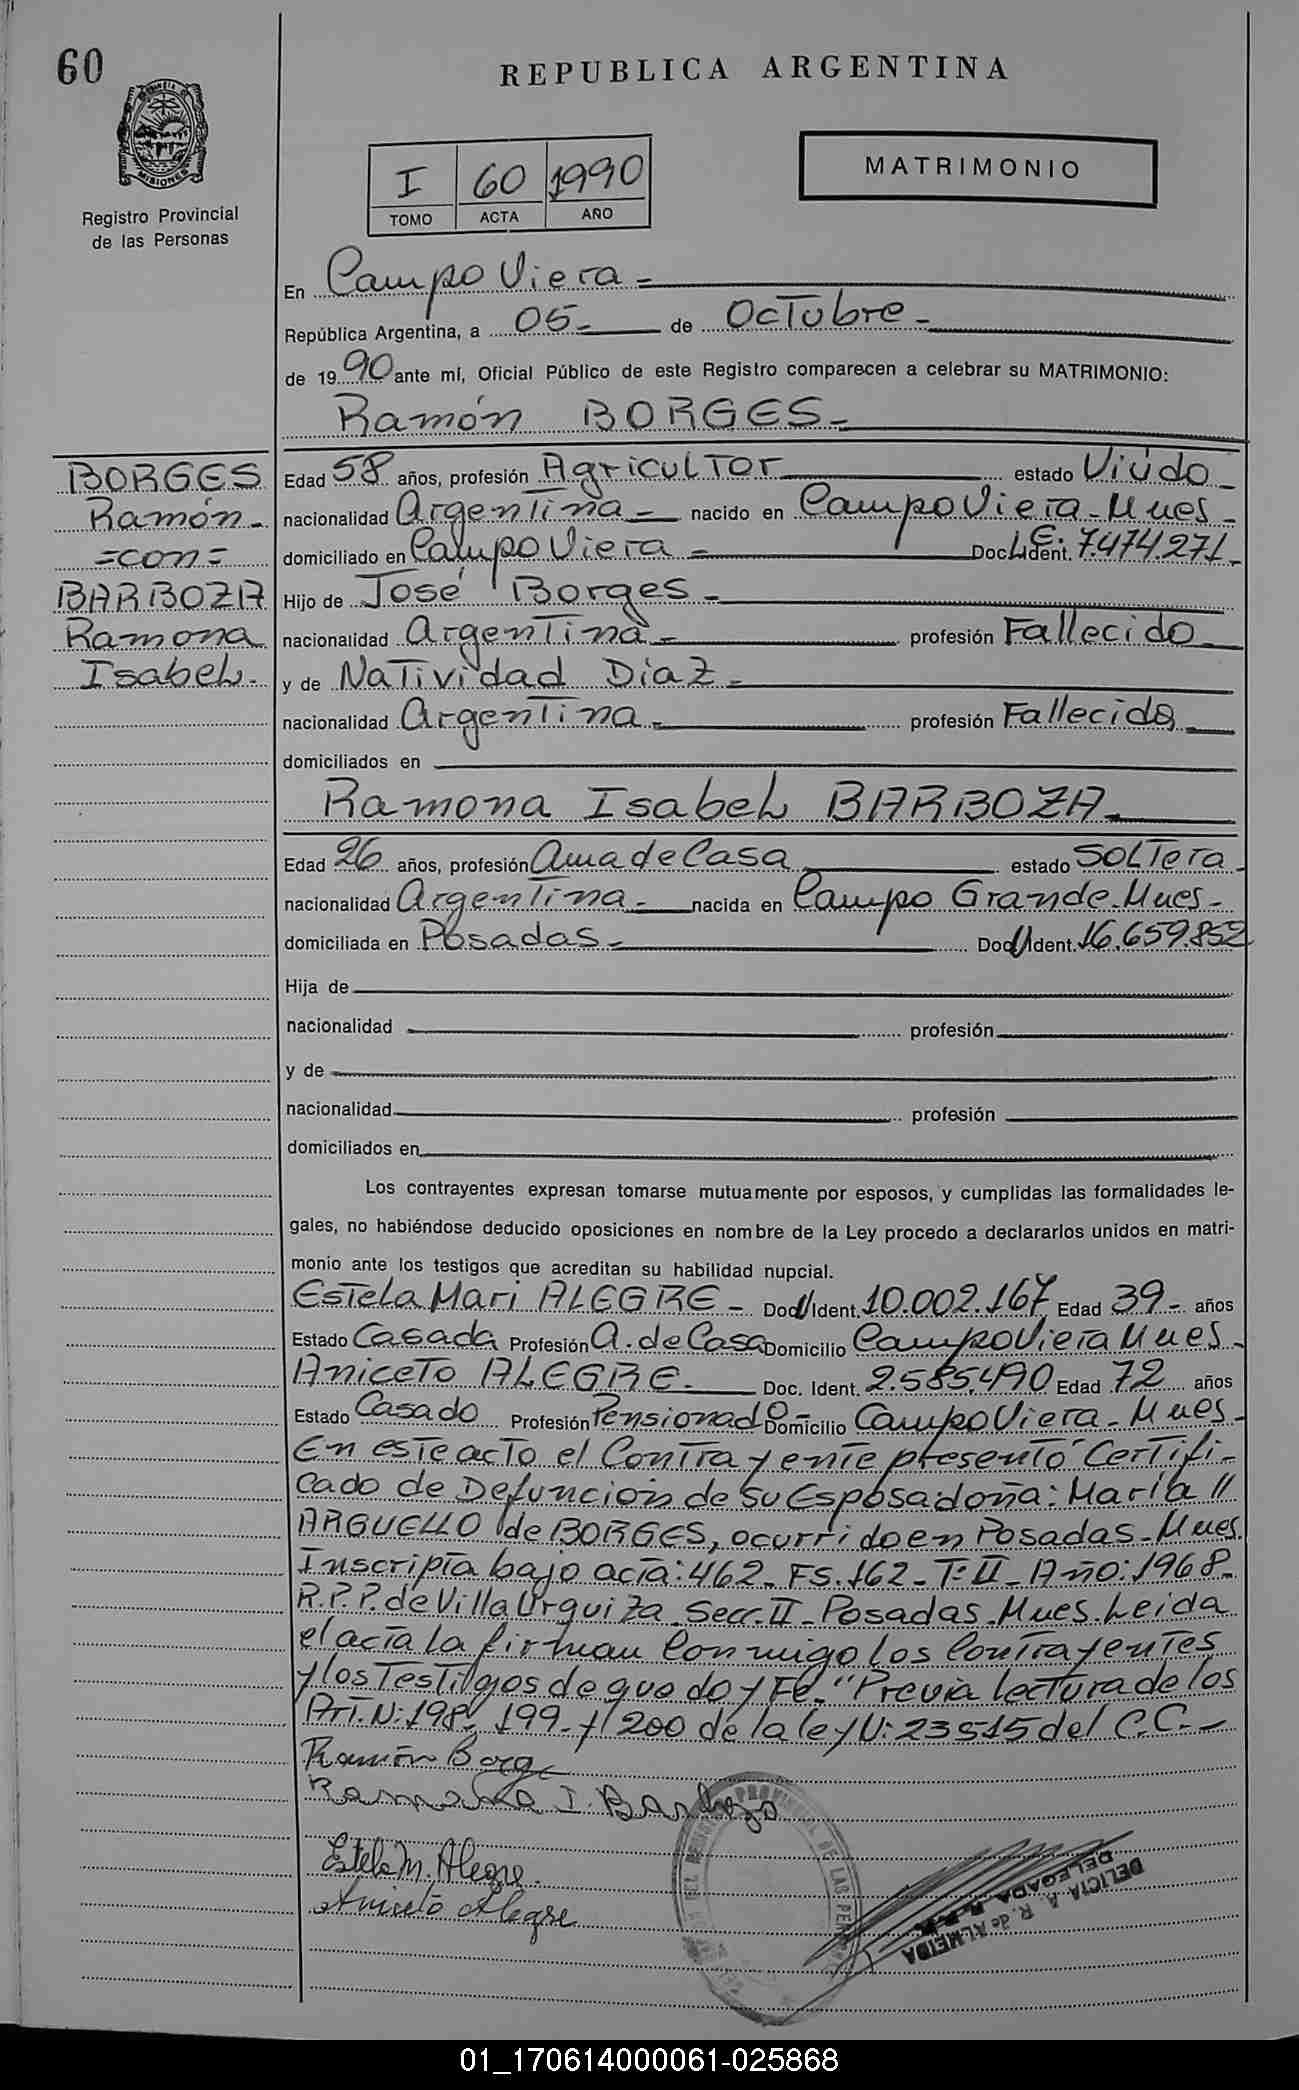 60
REPUBLICA ARGENTINA
MISIONES
Registro Provincial
de las Personas
I 60 1990
TOMO ACTA AÑO
MATRIMONIO
En Campo Viera-
República Argentina, a 05- de Octubre-
de 1990 ante mí, Oficial Público de este Registro comparecen a celebrar su MATRIMONIO:
Ramón BORGES-
BORGES
Ramón-
=con=
BARBOZA
Ramona
Isabel.
Edad 58 años, profesión Agricultor estado Viúdo-
nacionalidad Argentina- nacido en Campo Viera-Mnes-
domiciliado en Campo Viera- Doc. Ident. L.E. 7.474.271-
Hijo de José Borges-
nacionalidad Argentina- profesión Fallecido-
y de Natividad Diaz-
nacionalidad Argentina- profesión Fallecida
domiciliados en
Ramona Isabel BARBOZA-
Edad 26 años, profesión Ama de Casa estado Soltera-
nacionalidad Argentina- nacida en Campo Grande-Mnes-
domiciliada en Posadas- Doc. Ident. 16.659.852
Hija de
nacionalidad profesión
y de
nacionalidad profesión
domiciliados en
Los contrayentes expresan tomarse mutuamente por esposos, y cumplidas las formalidades le-
gales, no habiéndose deducido oposiciones en nombre de la Ley procedo a declararlos unidos en matri-
monio ante los testigos que acreditan su habilidad nupcial.
Estela Mari ALEGRE- Doc. Ident. 10.002.167 Edad 39- años
Estado Casada Profesión A. de Casa Domicilio Campo Viera Mnes-
Aniceto ALEGRE- Doc. Ident. 2.585.490 Edad 72 años
Estado Casado Profesión Pensionado- Domicilio Campo Viera-Mnes-
En este acto el Contrayente presentó Certifi-
cado de Defunción de su Esposa doña: María //
ARGUELLO de BORGES, ocurrido en Posadas-Mnes.
Inscripta bajo acta: 462- Fs. 162- T: II- Año: 1968-
R.P.P. de Villa Urquiza-Secc. II-Posadas-Mnes. Leida
el acta la firman Conmigo los Contrayentes
y los Testigos de que doy Fe. "Previa lectura de los
Art. N: 198, 199- y 200 de la ley N: 23515 del C.C.-
Ramón Borge
Ramona I. Barboza
Estela M. Alegre.
Aniceto Alegre
DELICIA A. R. de ALMEIDA
DELEGADA
01_170614000061-025868